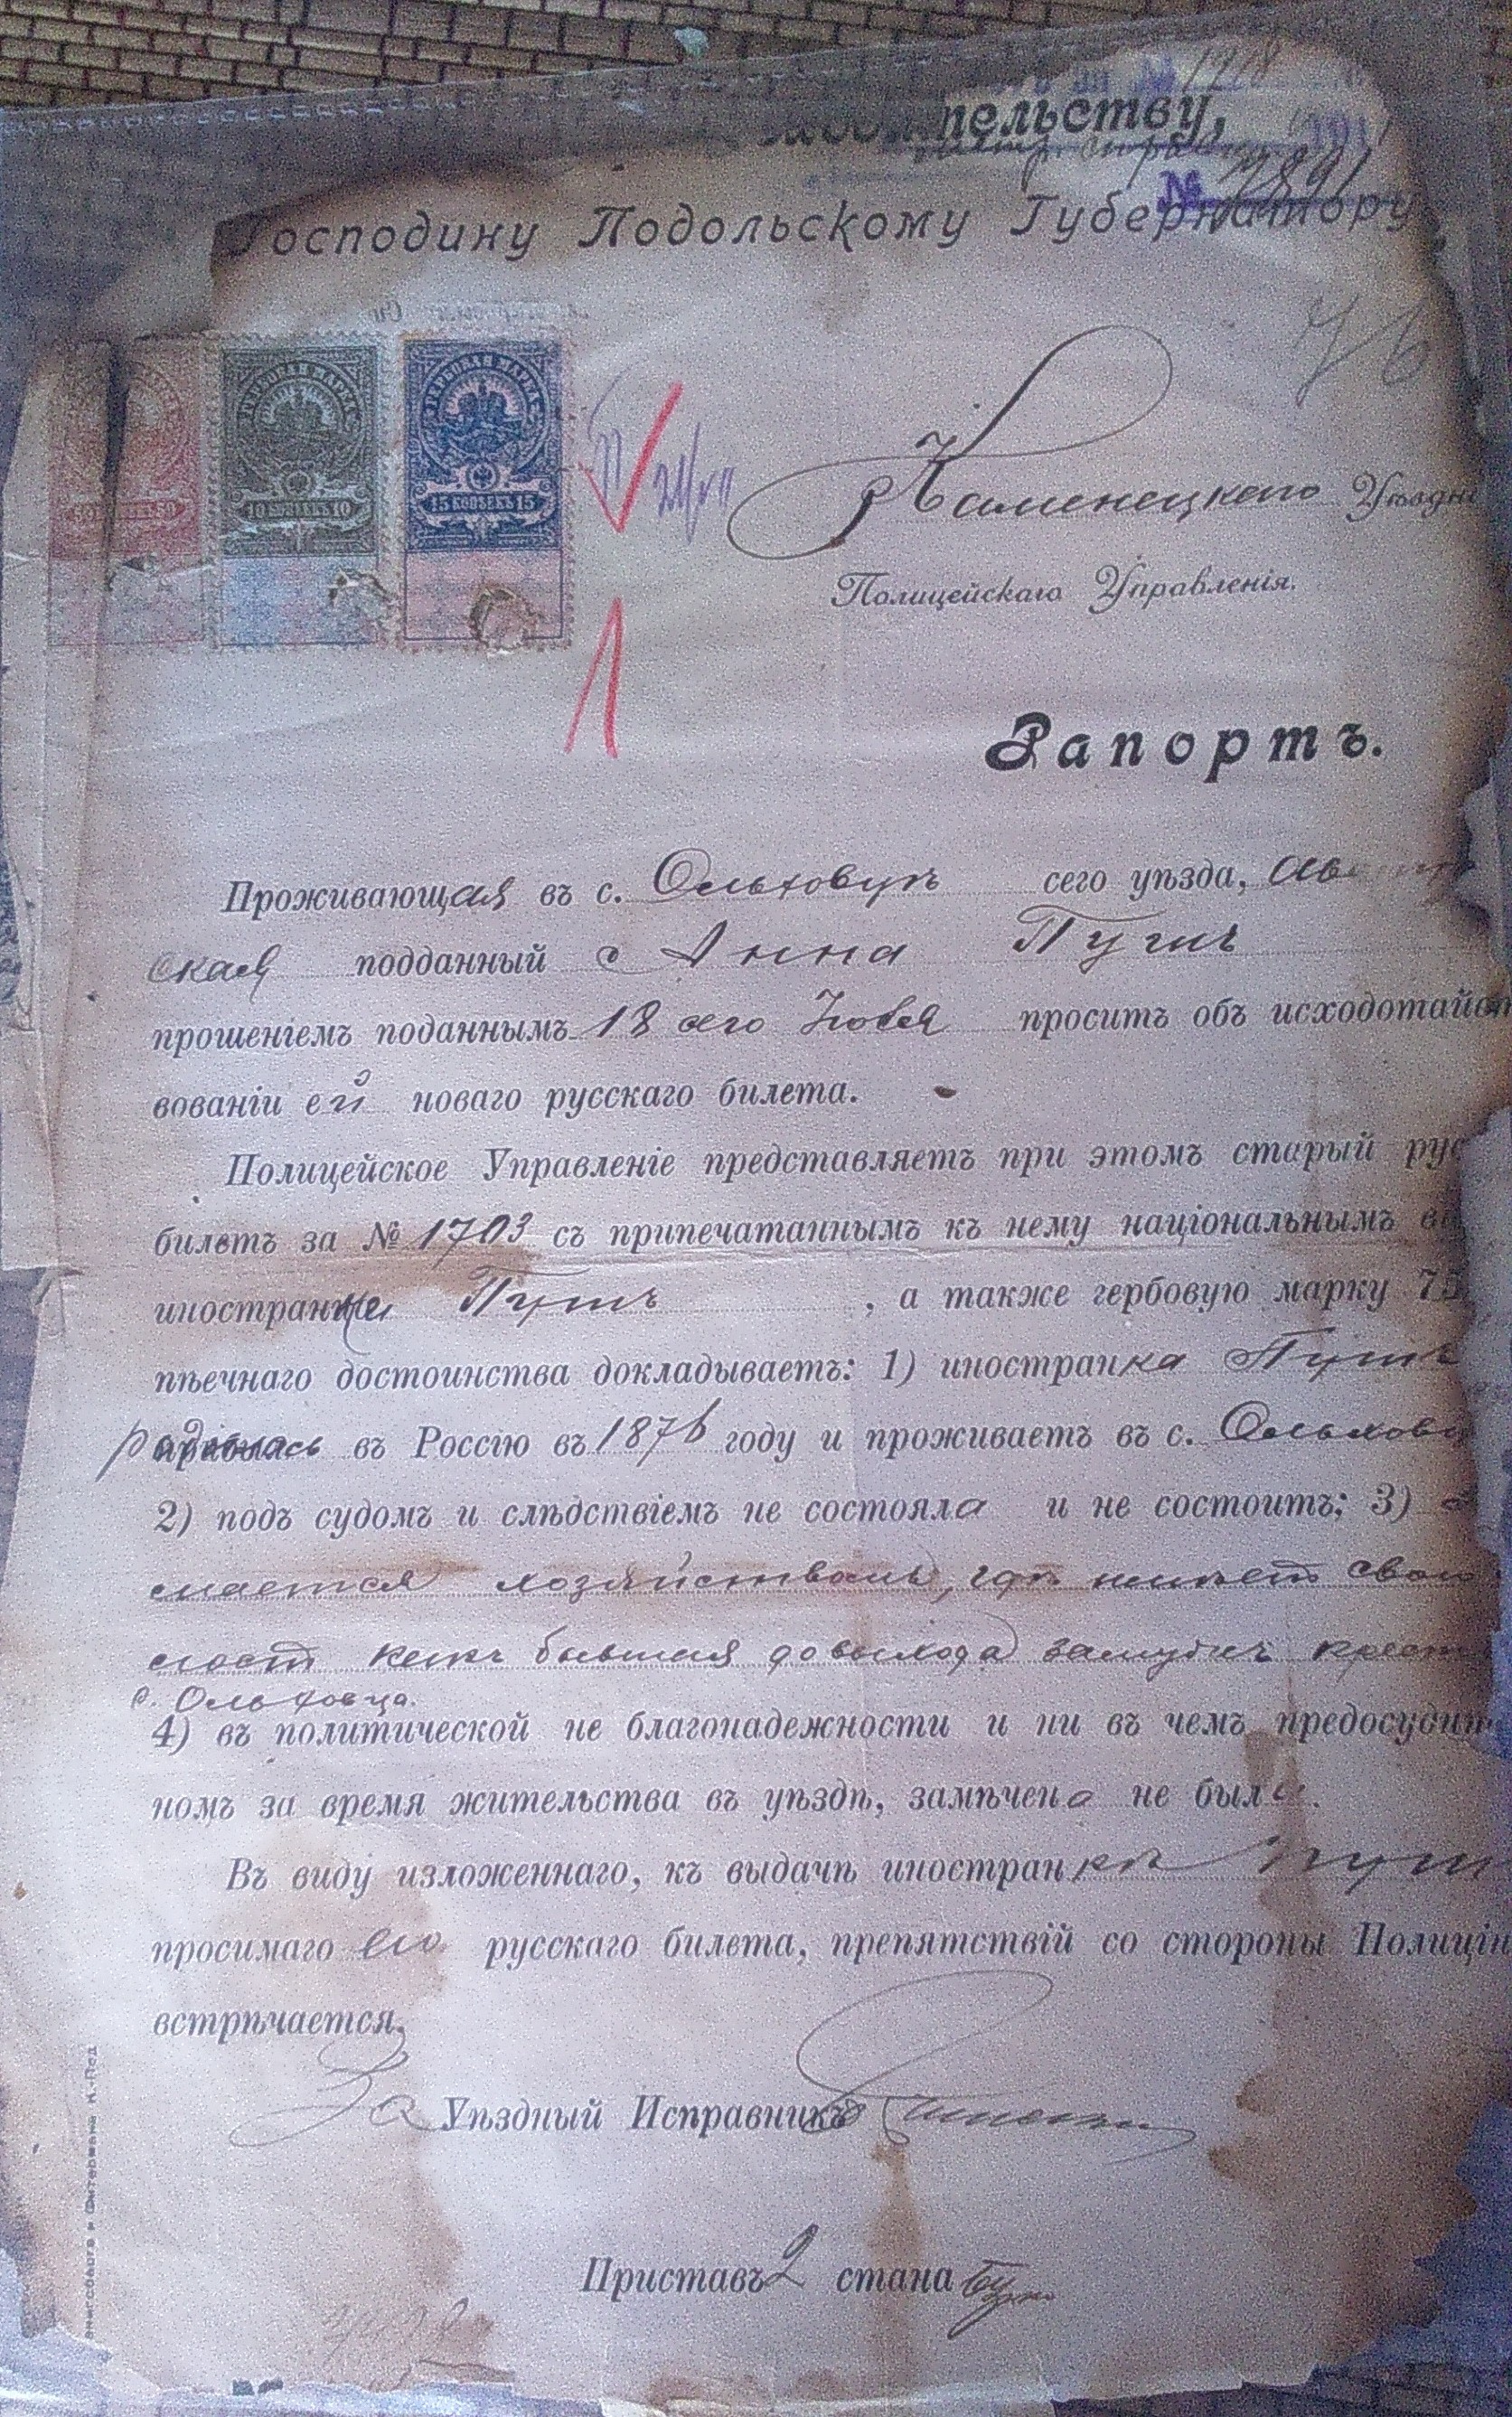 № 1218
пельству,
№ 7891
Господину Подольскому Губернатору,
76
ГЕРБОВАЯ МАРКА ГЕРБОВАЯ МАРКА
50 КОПѢЕКЪ 50 10 КОПѢЕКЪ 10 15 КОПѢЕКЪ 15
Каменецкаго Уѣздн
Полицейскаго Управленія.
Рапортъ.
Проживающая въ с. Ольховцѣ сего уѣзда, Австрій
ская подданный Анна Путъ
прошеніемъ поданнымъ 18 сего просить объ исходотайст
вованіи ей новаго русскаго билета.
Полицейское Управленіе представляетъ при этомъ старый рус
билетъ за № 1703 съ припечатаннымъ къ нему національнымъ ви
иностранки Путъ , а также гербовую марку 75
пѣечнаго достоинства докладываетъ: 1) иностранка Путъ
родилась въ Россію въ 1876 году и проживаетъ въ с. Ольхов
2) подъ судомъ и слѣдствіемъ не состояла и не состоитъ; 3)
мается хозяйствомъ, гдѣ имѣетъ свою
какъ бывшая до выхода замужъ крест
с. Ольховца.
4) въ политической не благонадежности и ни въ чемъ предосудит
номъ за время жительства въ уѣздѣ, замѣчена не была.
Въ виду изложеннаго, къ выдачѣ иностранкѣ Пут
просимаго ею русскаго билета, препятствій со стороны Полиціи
встрѣчается.
За Уѣздный Исправникъ
Приставъ 2 стана